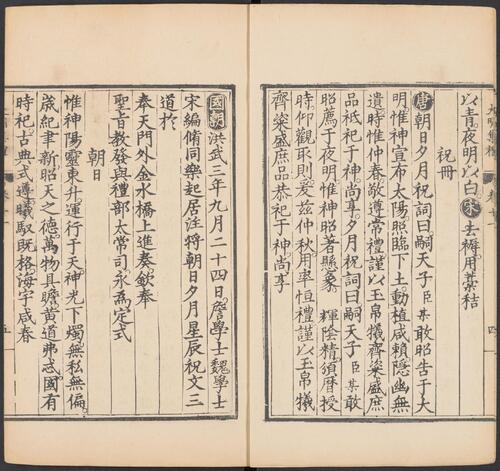 以青夜明以白宋去褥用藁秸
祝冊
唐朝日夕月祝詞曰嗣天子臣某敢昭告于大
明惟神宣布太陽照臨下土動植咸賴隱幽無
遺時惟仲春敬遵常禮謹以玉帛犧齊粢盛庶
品祗祀于神尚享夕月祝詞曰嗣天子臣某敢
昭薦于夜明惟神昭著懸象輝陰精須曆授
時仰觀取則爰茲仲秋用率恒禮謹以玉帛犧
齊粢盛庶品恭祀于神尚享
國朝洪武三年九月二十四日詹學士魏學士
宋編脩同樂起居注將朝日夕月星辰祝文三
道於
奉天門外金水橋上進奏欽奉
聖旨教發與禮部太常司永為定式
朝日
惟神陽靈東升運行于天神光下燭無私無偏
歲紀聿新昭天之德萬物具瞻黃道弗忒國有
時祀古典式遵曦馭既格海宇咸春